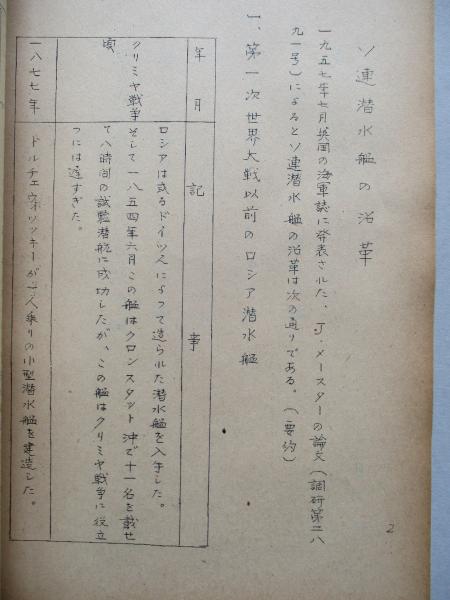 ソ連潜水艦の沿革
一九五七年七月英国の海軍誌に発表された、J・メースターの論文(調研第二八
九一号)によるとソ連潜水艦の沿革は次の通りである。(要約)
一、第一次世界大戦以前のロシア潜水艦
年月
記事
クリミヤ戦争
頃
ロシアは或るドイツ人によって造られた潜水艦を入手した。
そして一八五四年六月この艦はクロンスタット沖で十一名を載せ
て八時間の試験潜航に成功したが、この艦はクリミヤ戦争に役立
つには遅すぎた。
一八七七年
ドルチェウネツッキーが一人乗りの小型潜水艦を建造した。
2